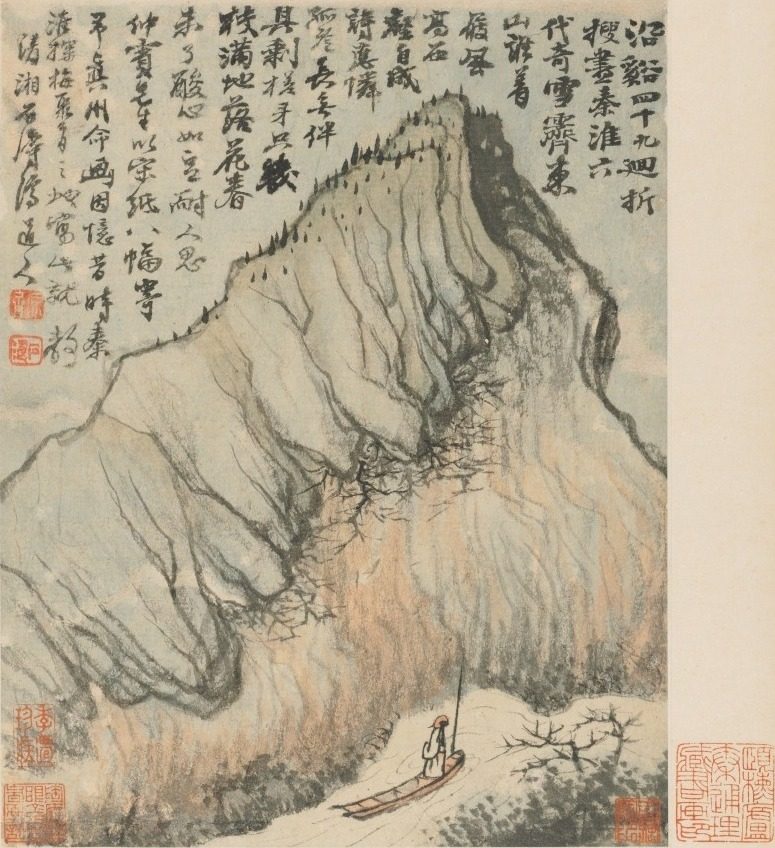 沿谿四十九迴折
搜盡秦淮六
代奇雪霽東
山誰着
屐風
高石
壑自成
詩應憐
孤老長無伴
具剩槎牙只幾
枝滿地落花春
未了酸心如豆耐人思
仲賓先生以宋紙八幅寄
真州命画因憶昔時秦
淮探梅之地寫此就教
清湘石濤濟道人